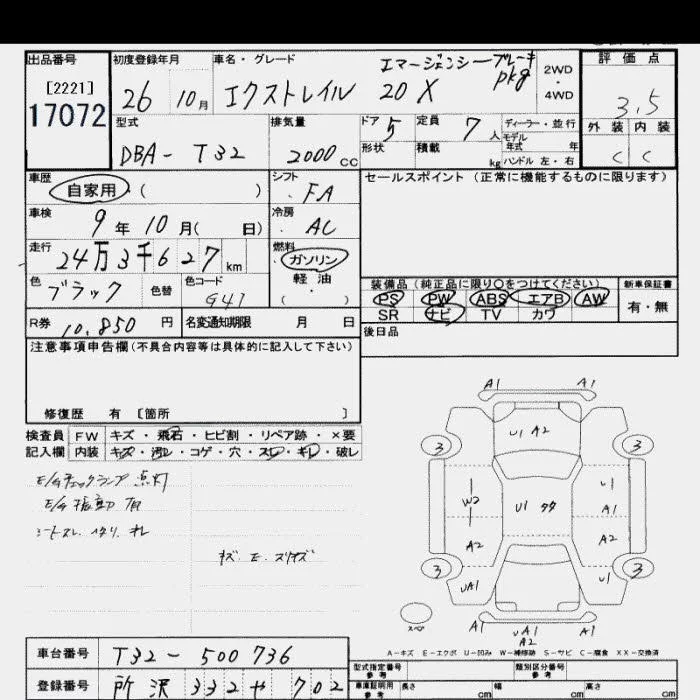 出品番号 初度登録年月 車名・グレード エマージェンシーブレーキ 2WD 評価点
[2221] 26 10月 エクストレイル 20X pkg ・
17072 4WD 3.5
型式 排気量 ドア 5 定員 7人 ディーラー・並行 外装 内装
DBA-T32 2000cc 形状 積載 kg モデル年式 年 C C
ハンドル 左・右
車歴 自家用 ( ) シフト FA セールスポイント(正常に機能するものに限ります)
車検 9年10月( 日) 冷房 AC
走行 24万3千627km 燃料 ガソリン
軽油・( )
色 ブラック 色替 色コード G41 装備品(純正品に限り〇をつけてください) 新車保証書
PS PW ABS エアB AW 有・無
SR ナビ TV カワ
R券 10,850円 名変通知期限 月 日 後日品
注意事項申告欄(不具合内容等は具体的に記入して下さい)
修復歴 有 〔箇所 〕
検査員 FW キズ・飛石・ヒビ割・リペア跡・×要
記入欄 内装 キズ・汚レ・コゲ・穴・スレ・キレ・破レ
E/Gチェックランプ点灯
E/G振動有
シートスレ
A1 A1
U1 A2
3 3
W2 U1 U1
A1
A2 A2
3 3
UA1 U1
スペ A1 UA1 A1
A2
A-キズ E-エクボ U-凹み W-補修跡 S-サビ C-腐食 XX-交換済
車台番号 T32-500736
登録番号 所沢 332 や 702
型式指定番号 参考 類別区分番号 参考
車庫証明用 参考 長さ cm 幅 cm 高さ cm